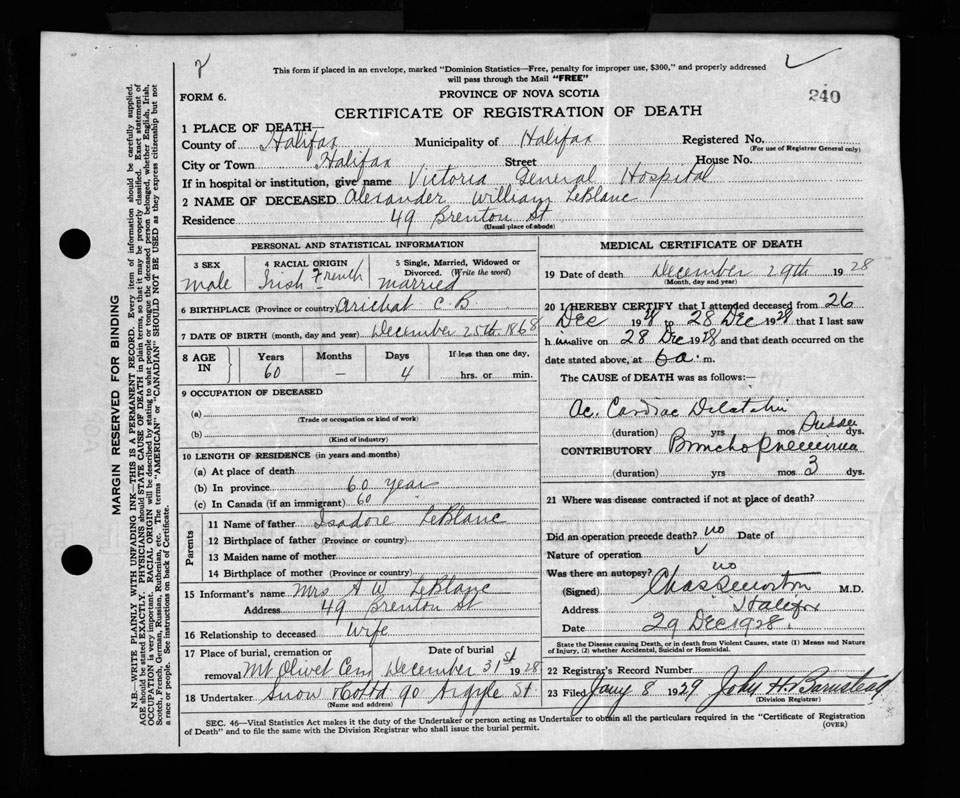 This form if placed in an envelope, marked "Dominion Statistics—Free, penalty for improper use, $300," and properly addressed
will pass through the Mail "FREE"
FORM 6.
PROVINCE OF NOVA SCOTIA
240
CERTIFICATE OF REGISTRATION OF DEATH
1 PLACE OF DEATH—
County of Halifax Municipality of Halifax Registered No.
(For use of Registrar General only)
City or Town Halifax Street House No.
If in hospital or institution, give name Victoria General Hospital
2 NAME OF DECEASED Alexander William LeBlanc
Residence 49 Brenton St
(Usual place of abode)
PERSONAL AND STATISTICAL INFORMATION
3 SEX
male
4 RACIAL ORIGIN
Irish French
5 Single, Married, Widowed or Divorced. (Write the word)
Married
6 BIRTHPLACE (Province or country) Arichat C.B
7 DATE OF BIRTH (month, day and year) December 25th 1868
8 AGE IN
Years Months Days If less than one day,
60 — 4 hrs. or min.
9 OCCUPATION OF DECEASED
(a)
(Trade or occupation or kind of work)
(b)
(Kind of industry)
10 LENGTH OF RESIDENCE (in years and months)
(a) At place of death
(b) In province 60 year
(c) In Canada (if an immigrant) 60
Parents
11 Name of father Isadore LeBlanc
12 Birthplace of father (Province or country)
13 Maiden name of mother
14 Birthplace of mother (Province or country)
15 Informant's name Mrs A W LeBlanc
Address 49 Brenton St
16 Relationship to deceased Wife
17 Place of burial, cremation or removal Mt Olivet Cem
Date of burial December 31st 1928
18 Undertaker Snow & Co Ltd 90 Argyle St
(Name and address)
MEDICAL CERTIFICATE OF DEATH
19 Date of death December 29th 1928
(Month, day and year)
20 I HEREBY CERTIFY that I attended deceased from 26
Dec 1928 to 28 Dec 1928 that I last saw
h im alive on 28 Dec 1928 and that death occurred on the
date stated above, at 6 a. m.
The CAUSE OF DEATH was as follows:—
Ac. Cardiac Dilatation
(duration) yrs mos Sudden dys.
CONTRIBUTORY Broncho pneumonia
(duration) yrs mos 3 dys.
21 Where was disease contracted if not at place of death?
Did an operation precede death? no Date of
Nature of operation
Was there an autopsy? no
(Signed) M.D.
Address Halifax
Date 29 Dec 1928.
State the Disease causing Death, or in death from Violent Causes, state (1) Means and
Nature of Injury, (2) whether Accidental, Suicidal or Homicidal.
22 Registrar's Record Number
23 Filed Jany 8 1929 John H Barnstead
(Division Registrar)
SEC. 46—Vital Statistics Act makes it the duty of the Undertaker or person acting as Undertaker to obtain all the particulars required in the "Certificate of Registration
of Death" and to file the same with the Division Registrar who shall issue the burial permit.
(OVER)
MARGIN RESERVED FOR BINDING
N.B.—WRITE PLAINLY WITH UNFADING INK—THIS IS A PERMANENT RECORD. Every item of information should be carefully supplied.
AGE should be stated EXACTLY. PHYSICIANS should STATE CAUSE OF DEATH in plain terms, so that it may be properly classified. Exact statement of
OCCUPATION is very important. RACIAL ORIGIN will be described by stating to what people or tongue the deceased person belonged, whether English, Irish,
Scotch, French, German, Russian, Ruthenian, etc. The terms "AMERICAN" or "CANADIAN" SHOULD NOT BE USED as they express citizenship but not
a race of people. See instructions on back of Certificate.